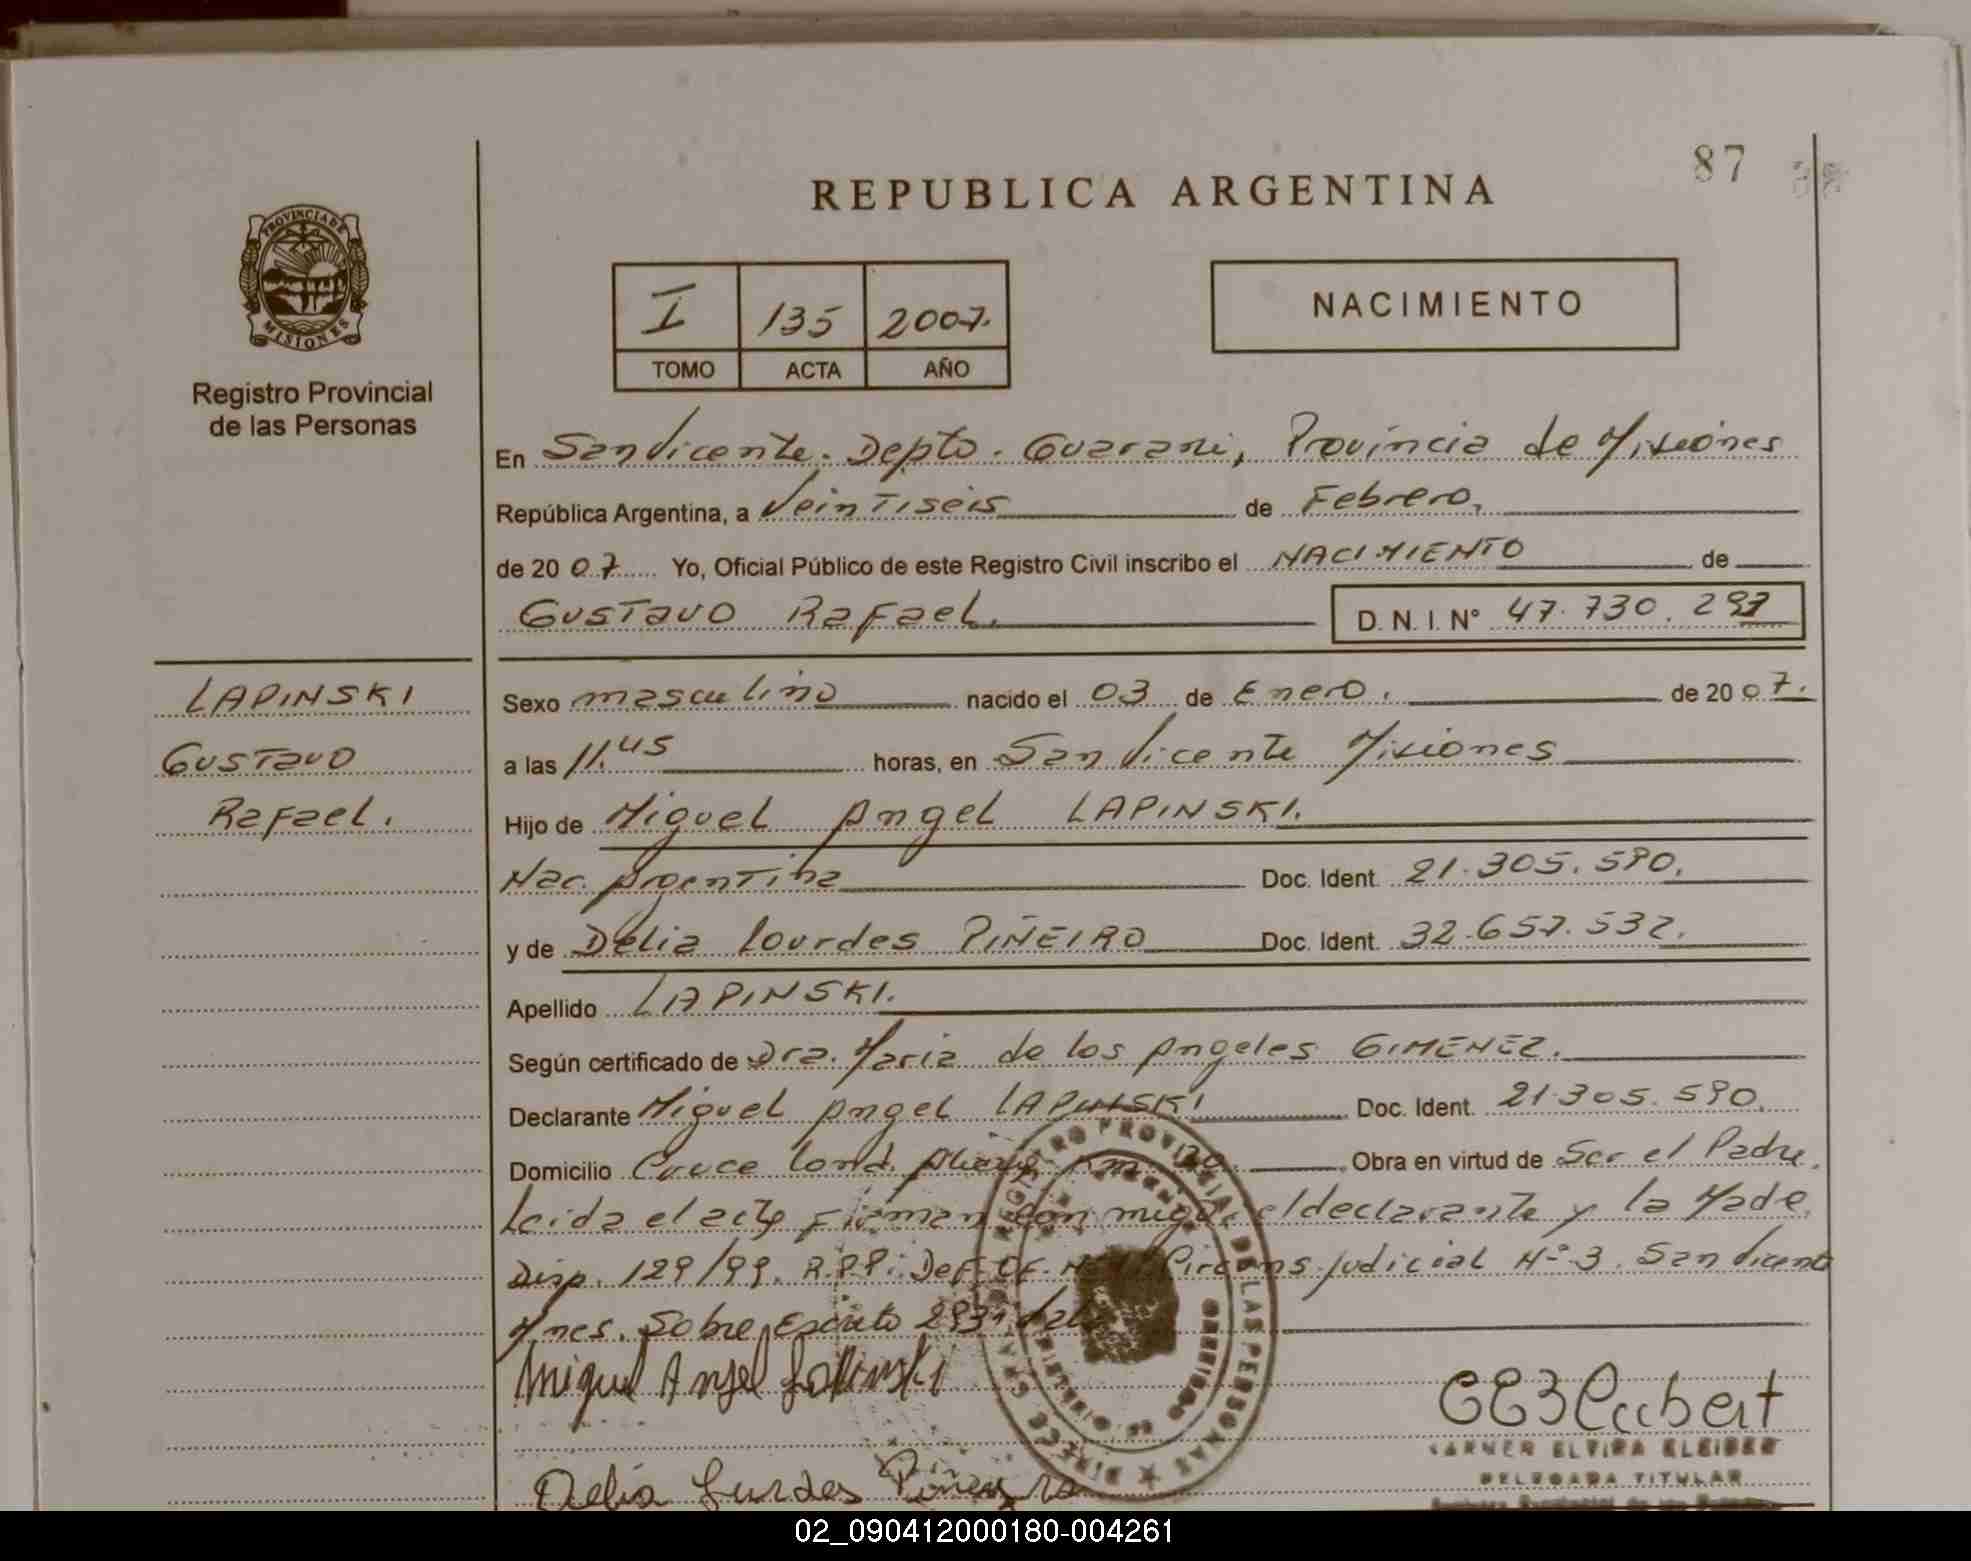 87
REPUBLICA ARGENTINA
PROVINCIA DE
MISIONES
Registro Provincial
de las Personas
I 135 2007.
TOMO ACTA AÑO
NACIMIENTO
En San Vicente. Depto. Guarani, Provincia de Misiones
República Argentina, a Veintiseis de Febrero,
de 2007 Yo, Oficial Público de este Registro Civil inscribo el NACIMIENTO de
Gustavo Rafael. D. N. I. N° 47.730.297
LAPINSKI
Gustavo
Rafael.
Sexo masculino nacido el 03 de Enero. de 2007.
a las 11.45 horas, en San Vicente Misiones
Hijo de Miguel Angel LAPINSKI.
Nac. Argentina Doc. Ident. 21.305.590.
y de Delia Lourdes PIÑEIRO Doc. Ident. 32.657.532.
Apellido LAPINSKI.
Según certificado de Dra. Maria de los Angeles GIMENEZ.
Declarante Miguel Angel LAPINSKI Doc. Ident. 21.305.590.
Domicilio Cruce Obra en virtud de Ser el Padre.
Leida el acta Firman con migo, el declarante y la Made.
Disp. 129/99. R.P.P. Def. Of. Circuns. judicial N° 3. San Vicente
Mnes. Sobre Escrito
Miguel Angel Lapinski
Delia Lurdes Piñeyro
REGISTRO PROVINCIAL DE LAS PERSONAS
ELVIRA KLEIBER
DELEGADA TITULAR
02_090412000180-004261